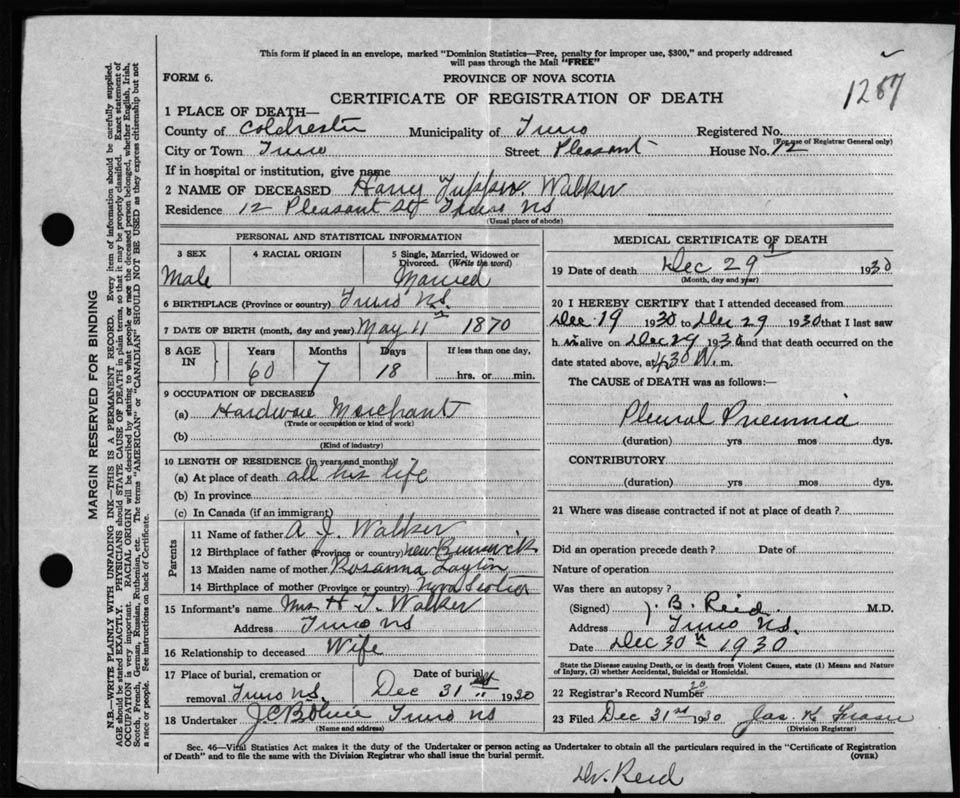 This form if placed in an envelope, marked "Dominion Statistics—Free, penalty for improper use, $300," and properly addressed
will pass through the Mail "FREE"
FORM 6.
PROVINCE OF NOVA SCOTIA
1287
CERTIFICATE OF REGISTRATION OF DEATH
1 PLACE OF DEATH—
County of Colchester Municipality of Truro Registered No.
(For use of Registrar General only)
City or Town Truro Street Pleasant House No. 12
If in hospital or institution, give name
2 NAME OF DECEASED Harry Tupper Walker
Residence 12 Pleasant St Truro NS
(Usual place of abode)
PERSONAL AND STATISTICAL INFORMATION
3 SEX 4 RACIAL ORIGIN 5 Single, Married, Widowed or Divorced. (Write the word)
Male Married
6 BIRTHPLACE (Province or country) Truro N.S.
7 DATE OF BIRTH (month, day and year) May 11 1870
8 AGE IN Years Months Days If less than one day,
60 7 18 hrs. or min.
9 OCCUPATION OF DECEASED
(a) Hardware Merchant
(Trade or occupation or kind of work)
(b)
(Kind of industry)
10 LENGTH OF RESIDENCE (in years and months)
(a) At place of death all his life
(b) In province
(c) In Canada (if an immigrant)
Parents
11 Name of father A J. Walker
12 Birthplace of father (Province or country) New Brunswick
13 Maiden name of mother Rosanna Layton
14 Birthplace of mother (Province or country) Nova Scotia
15 Informant's name Mrs H. T. Walker
Address Truro NS
16 Relationship to deceased Wife
17 Place of burial, cremation or removal Truro NS. Date of burial Dec 31st 1930
18 Undertaker Truro NS
(Name and address)
MEDICAL CERTIFICATE OF DEATH
19 Date of death Dec 29 1930
(Month, day and year)
20 I HEREBY CERTIFY that I attended deceased from
Dec 19 1930 to Dec 29 1930 that I last saw
h im alive on Dec 29 1930 and that death occurred on the
date stated above, at 4.30 m.
The CAUSE of DEATH was as follows:—
Pleural Pneumnia
(duration) yrs mos dys.
CONTRIBUTORY
(duration) yrs mos dys.
21 Where was disease contracted if not at place of death?
Did an operation precede death? Date of
Nature of operation
Was there an autopsy?
(Signed) J. B. Reid M.D.
Address Truro NS.
Date Dec 30th 1930
State the Disease causing Death, or in death from Violent Causes, state (1) Means and Nature
of Injury, (2) whether Accidental, Suicidal or Homicidal.
22 Registrar's Record Number
23 Filed Dec 31st 1930 Jas K. Fraser
(Division Registrar)
Sec. 46—Vital Statistics Act makes it the duty of the Undertaker or person acting as Undertaker to obtain all the particulars required in the "Certificate of Registration
of Death" and to file the same with the Division Registrar who shall issue the burial permit. (OVER)
Dr. Reid
MARGIN RESERVED FOR BINDING
N.B.—WRITE PLAINLY WITH UNFADING INK—THIS IS A PERMANENT RECORD. Every item of information should be carefully supplied.
AGE should be stated EXACTLY. PHYSICIANS should STATE CAUSE OF DEATH in plain terms, so that it may be properly classified. Exact statement of
OCCUPATION is very important. RACIAL ORIGIN will be described by stating to what people or race the deceased person belonged, whether English, Irish,
Scotch, French, German, Russian, Ruthenian, etc. The terms "AMERICAN" or "CANADIAN" SHOULD NOT BE USED as they express citizenship but not
a race or people. See instructions on back of Certificate.